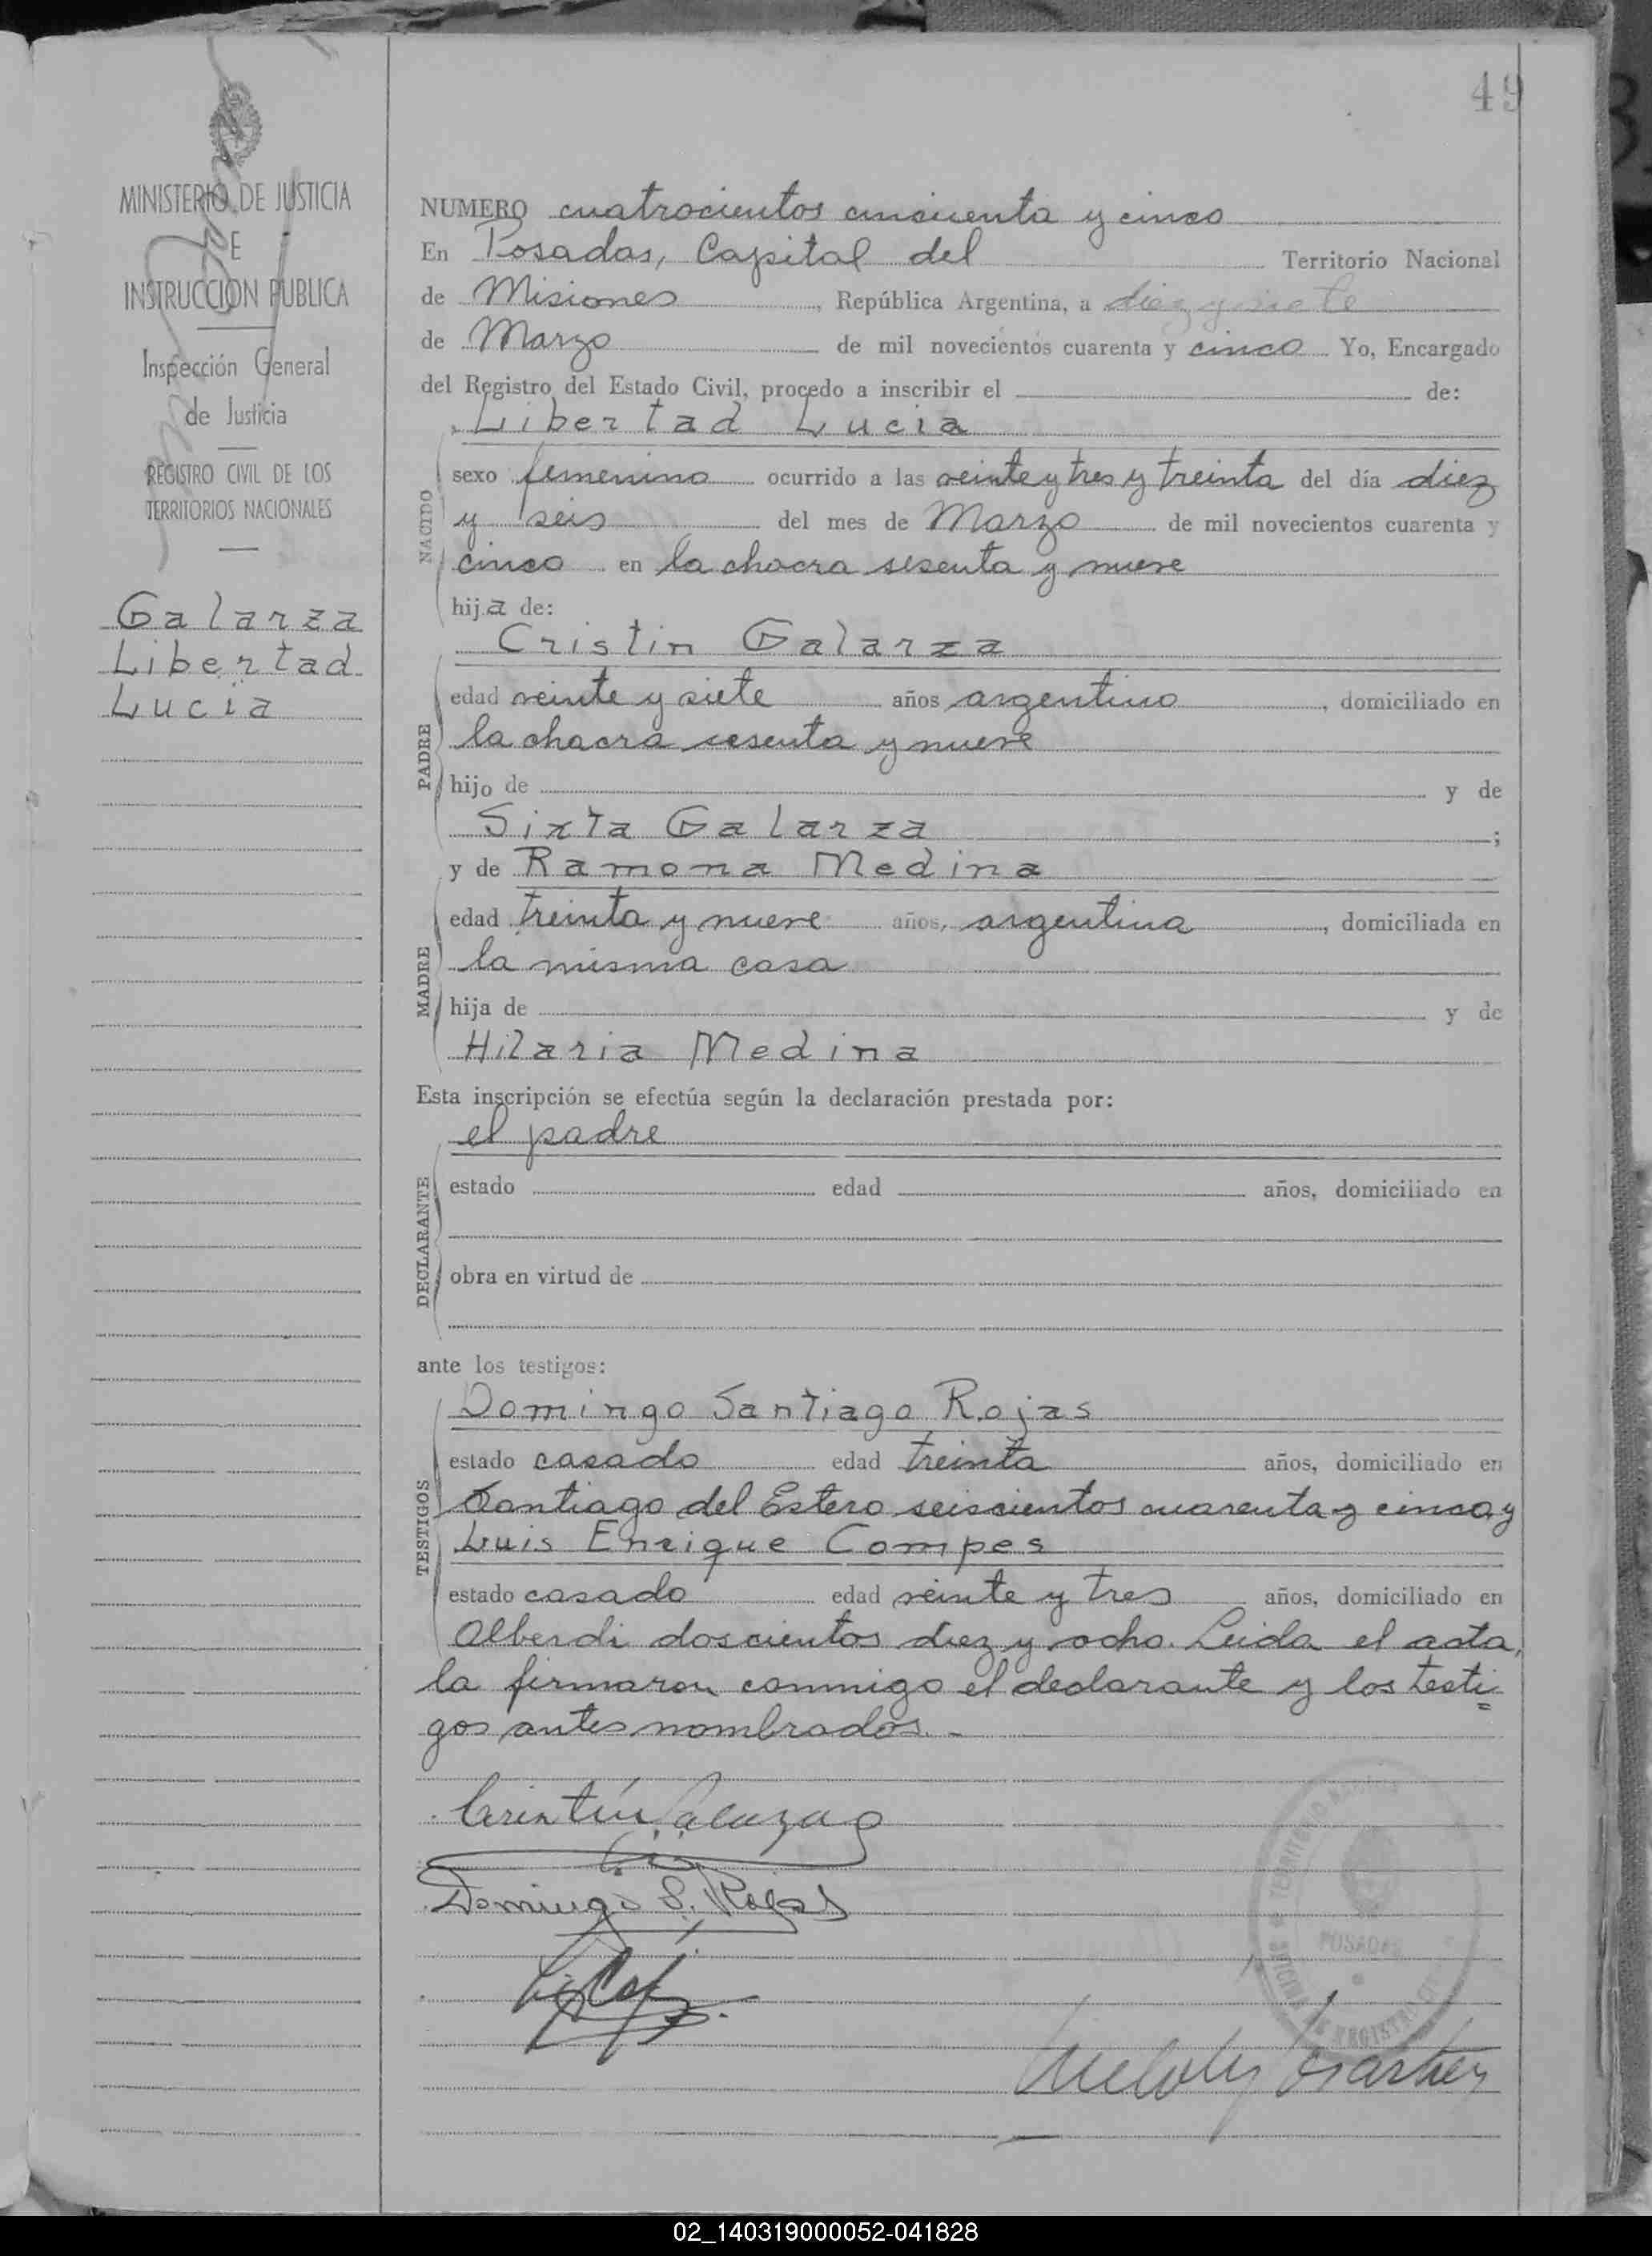 49
MINISTERIO DE JUSTICIA
E
INSTRUCCION PUBLICA
Inspección General
de Justicia
REGISTRO CIVIL DE LOS
TERRITORIOS NACIONALES
Galarza
Libertad
Lucia
NUMERO cuatrocientos cincuenta y cinco
En Posadas, Capital del Territorio Nacional
de Misiones, República Argentina, a diez y siete
de Marzo de mil novecientos cuarenta y cinco Yo, Encargado
del Registro del Estado Civil, procedo a inscribir el de:
Libertad Lucia
NACIDO
sexo femenino ocurrido a las veinte y tres y treinta del día diez
y seis del mes de Marzo de mil novecientos cuarenta y
cinco en la chacra sesenta y nueve
hija de:
Cristin Galarza
PADRE
edad veinte y siete años argentino, domiciliado en
la chacra sesenta y nueve
hijo de y de
Sixta Galarza;
y de Ramona Medina
MADRE
edad treinta y nueve años, argentina, domiciliada en
la misma casa
hija de y de
Hilaria Medina
Esta inscripción se efectúa según la declaración prestada por:
el padre
DECLARANTE
estado edad años, domiciliado en
obra en virtud de
ante los testigos:
TESTIGOS
Domingo Santiago Rojas
estado casado edad treinta años, domiciliado en
Santiago del Estero seiscientos cuarenta y cinco y
Luis Enrique Compes
estado casado edad veinte y tres años, domiciliado en
Alberdi doscientos diez y ocho. Leida el acta,
la firmaron conmigo el declarante y los testi
gos antes nombrados. -
Domingo S. Rojas
POSADAS
02_140319000052-041828